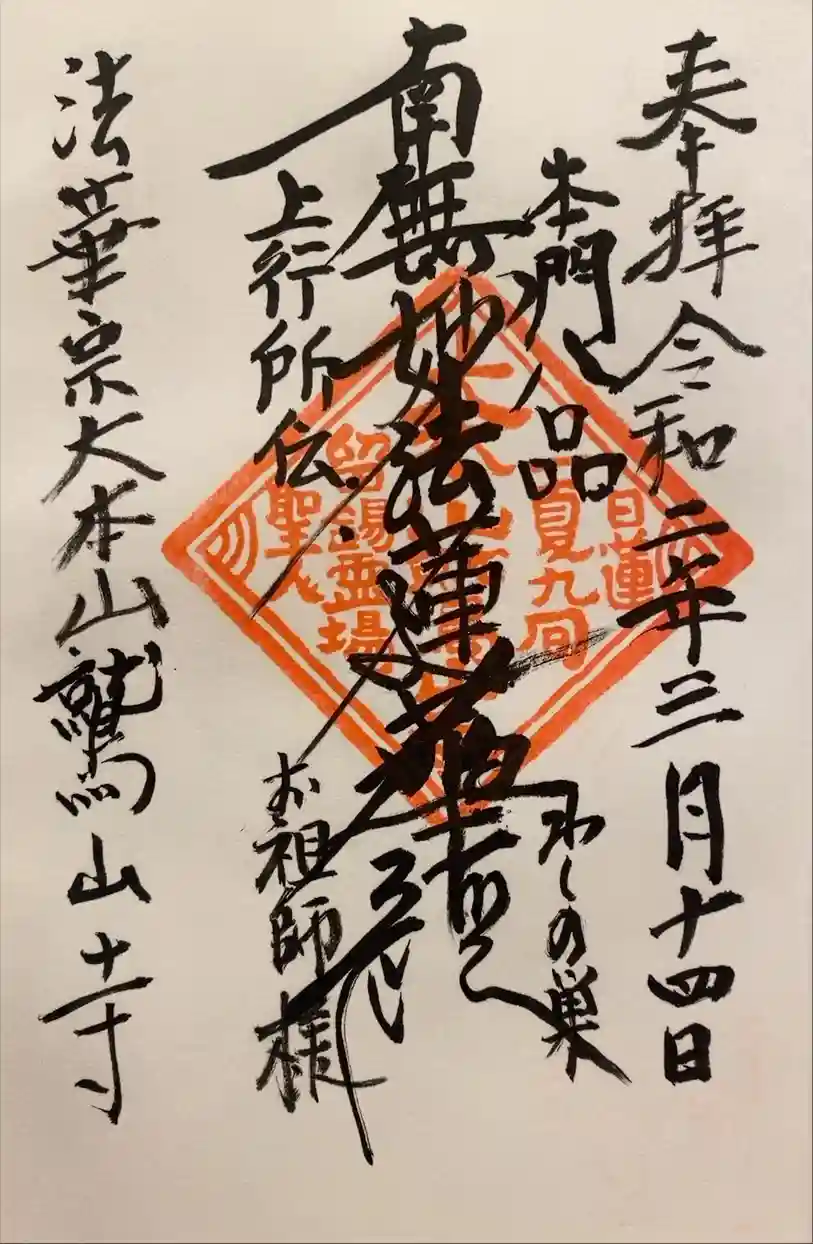 奉拝 令和二年三月十四日
本門八品
わしの巣
南無妙法蓮華経
上行所伝
お祖師様
法華宗大本山鷲山寺
日蓮
一夏九旬
留錫霊場
聖人